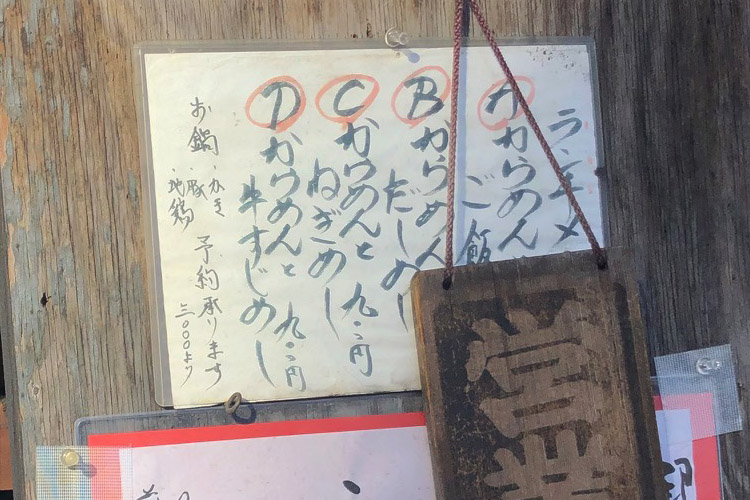 ランチメ
Aからめん
ご飯
Bからめん
だしめし
Cからめんと
ねぎめし 九〇〇円
Dからめんと
牛すじめし 九〇〇円
お鍋・かき
・豚
・地鶏
予約承ります
三〇〇〇より
営業